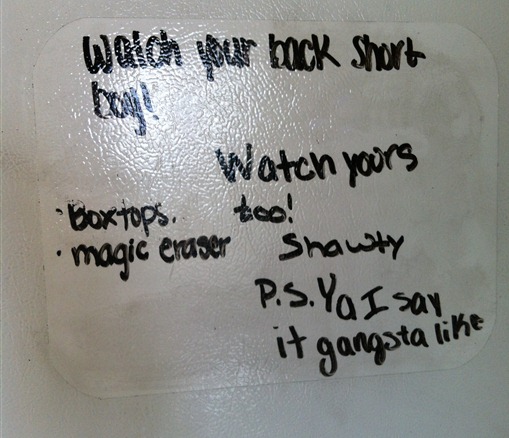 Watch your back short
boy!
Watch yours
too!
• Boxtops.
• magic eraser
Shawty
P.S. Ya I say
it gangsta like